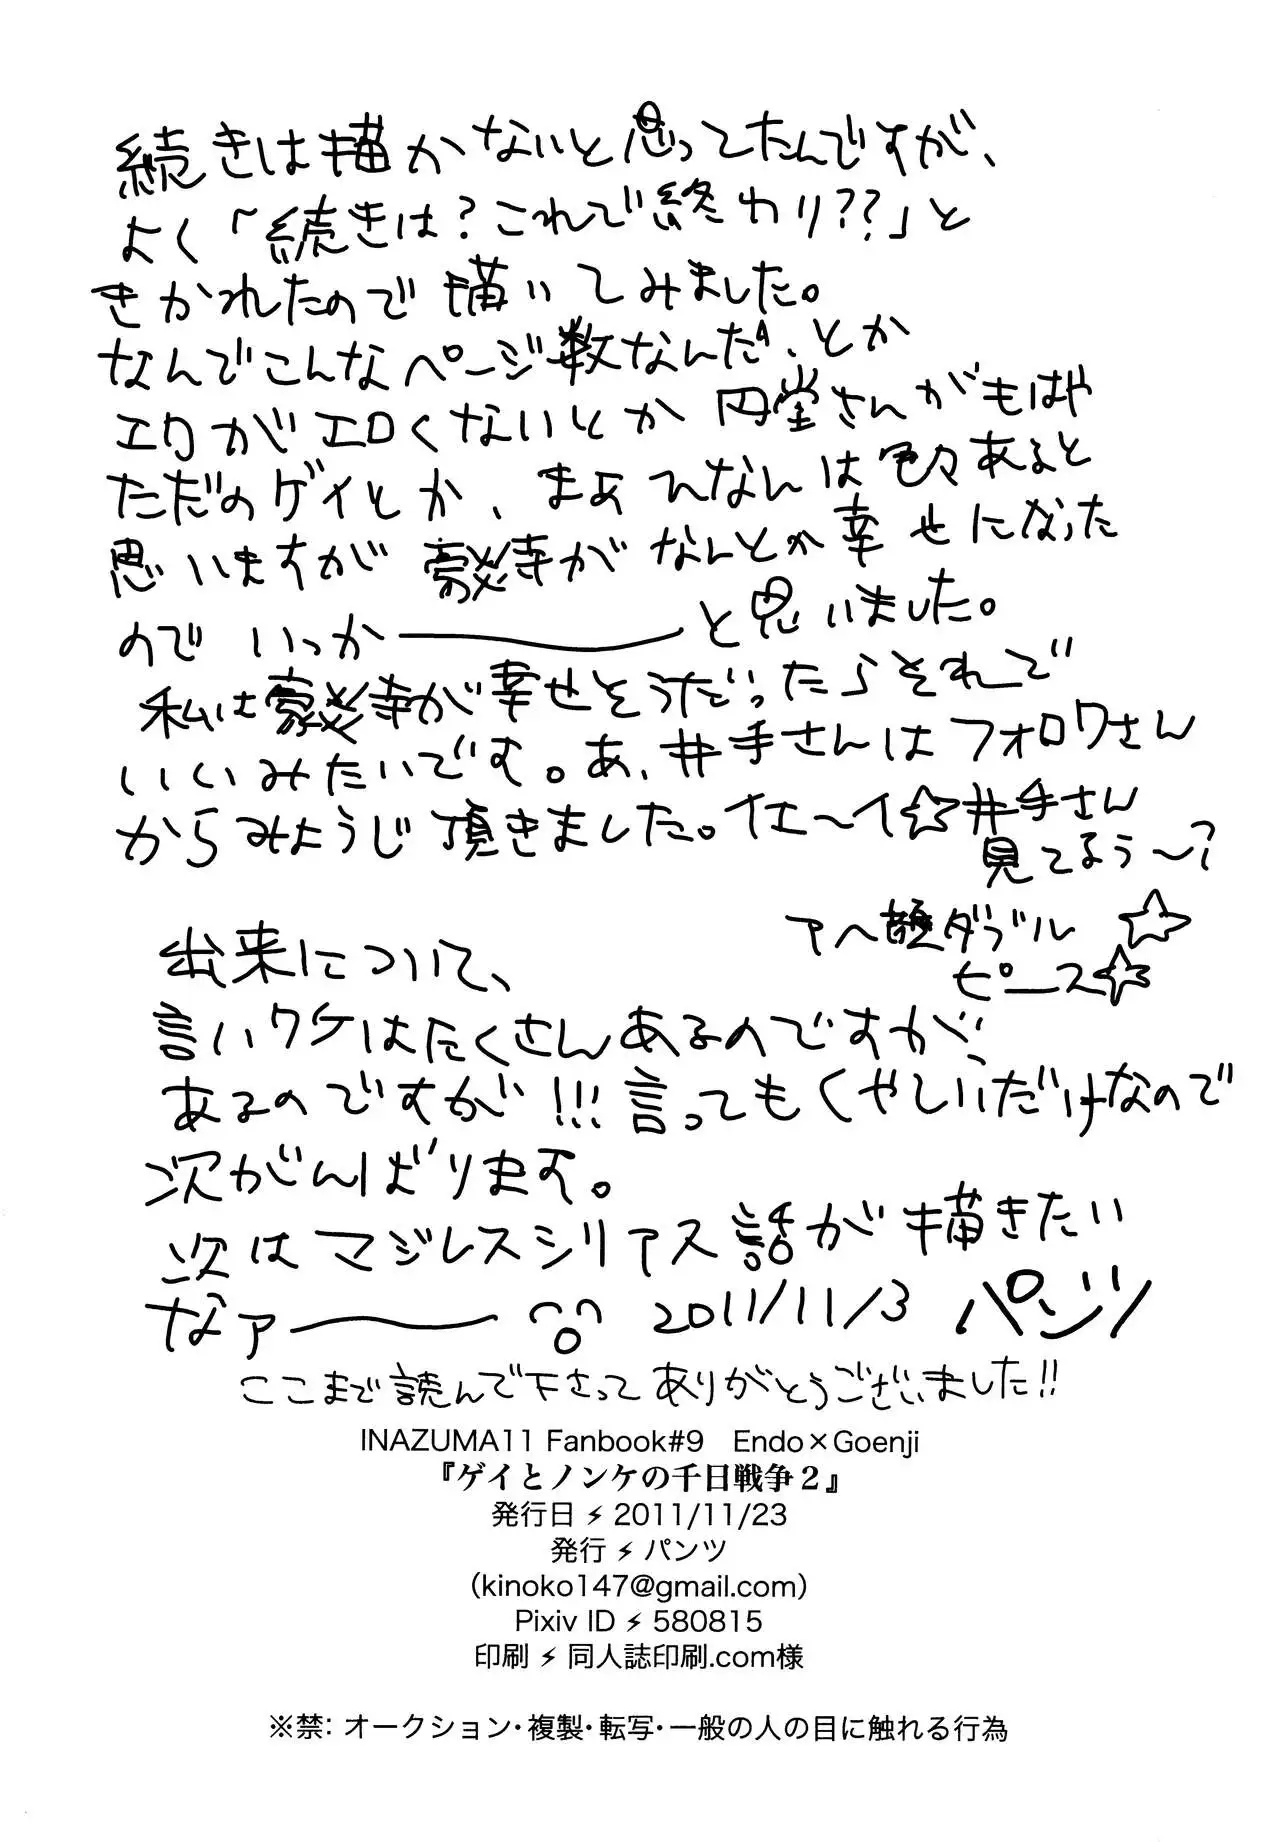 続きは描かないと思ってたんですが、
よく「続きは？これで終わり??」と
きかれたので描いてみました。
なんでこんなページ数なんだ、とか
エロがエロくないとか円堂さんがもはや
ただのゲイとか、まあひなんは色々あると
思いますが豪炎寺がなんとか幸せになった
のでいっか―――と思いました。
私は豪炎寺が幸せそうだったらそれで
いいみたいです。あ、井手さんはフォロワさん
からみょうじ頂きました。イエ～イ☆井手さん
見てるぅ～？
アヘ顔ダブル☆
ピース☆
出来について、
言いワケはたくさんあるのですが、
あるのですが!!!言ってもくやしいだけなので
次がんばります。
次はマジレスシリアス話が描きたい
なァ――― 2011/11/3 パンツ
ここまで読んで下さってありがとうございました!!
INAZUMA11 Fanbook#9 Endo×Goenji
『ゲイとノンケの千日戦争２』
発行日⚡2011/11/23
発行⚡パンツ
（kinoko147@gmail.com）
Pixiv ID⚡580815
印刷⚡同人誌印刷.com様
※禁：オークション・複製・転写・一般の人の目に触れる行為